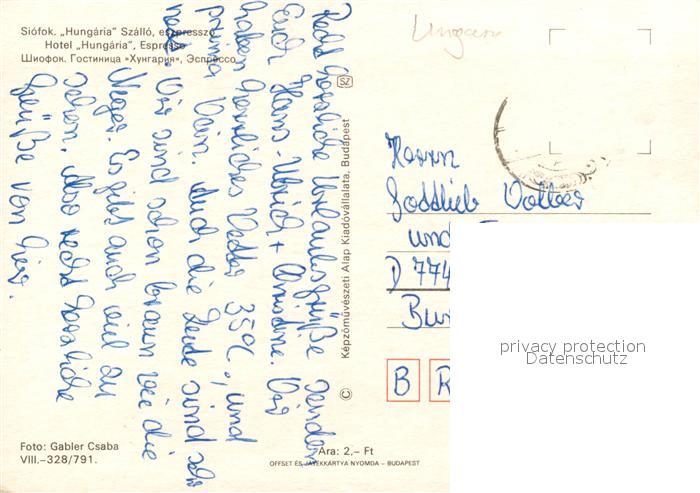 Siófok. „Hungária” Szálló, eszpresszó
Hotel „Hungária”, Espresso
Шиофок. Гостиница «Хунгария», Эспрессо
Ungarn
Recht herzliche Urlaubsgrüße senden
Euch Hans-Ulrich + Christine. Wir
haben herrliches Wetter 35°C, und
prima Wein. Auch die Leute sind sehr
nett. Wir sind schon braun wie die
Neger. Es gibt auch viel zu
sehen. Also recht herzliche
Grüße von hier.
SZ
Képzőművészeti Alap Kiadóvállalata, Budapest
©
Herrn
Gottlieb Volker
und
D 774
B R
privacy protection
Datenschutz
Foto: Gabler Csaba
VIII.–328/791.
Ára: 2,– Ft
OFFSET ÉS JÁTÉKKÁRTYA NYOMDA – BUDAPEST